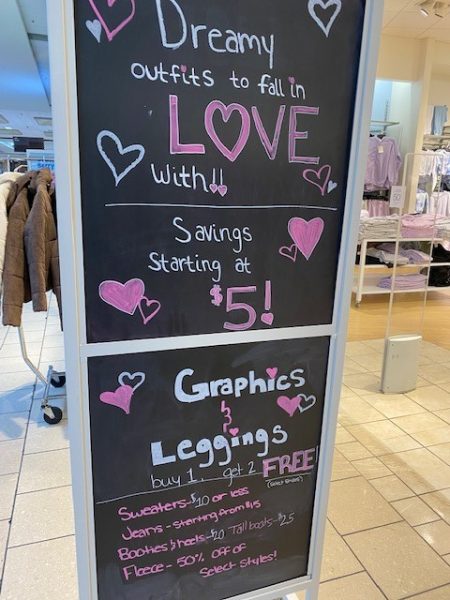 Dreamy
outfits to fall in
LOVE
with!!
Savings
Starting at
$5!
Graphics
&
Leggings
buy 1, get 2 FREE!
(select styles)
Sweaters-$10 or less
Jeans - starting from $15
Booties & heels-$20 Tall boots-$25
Fleece - 50% off of
Select Styles!